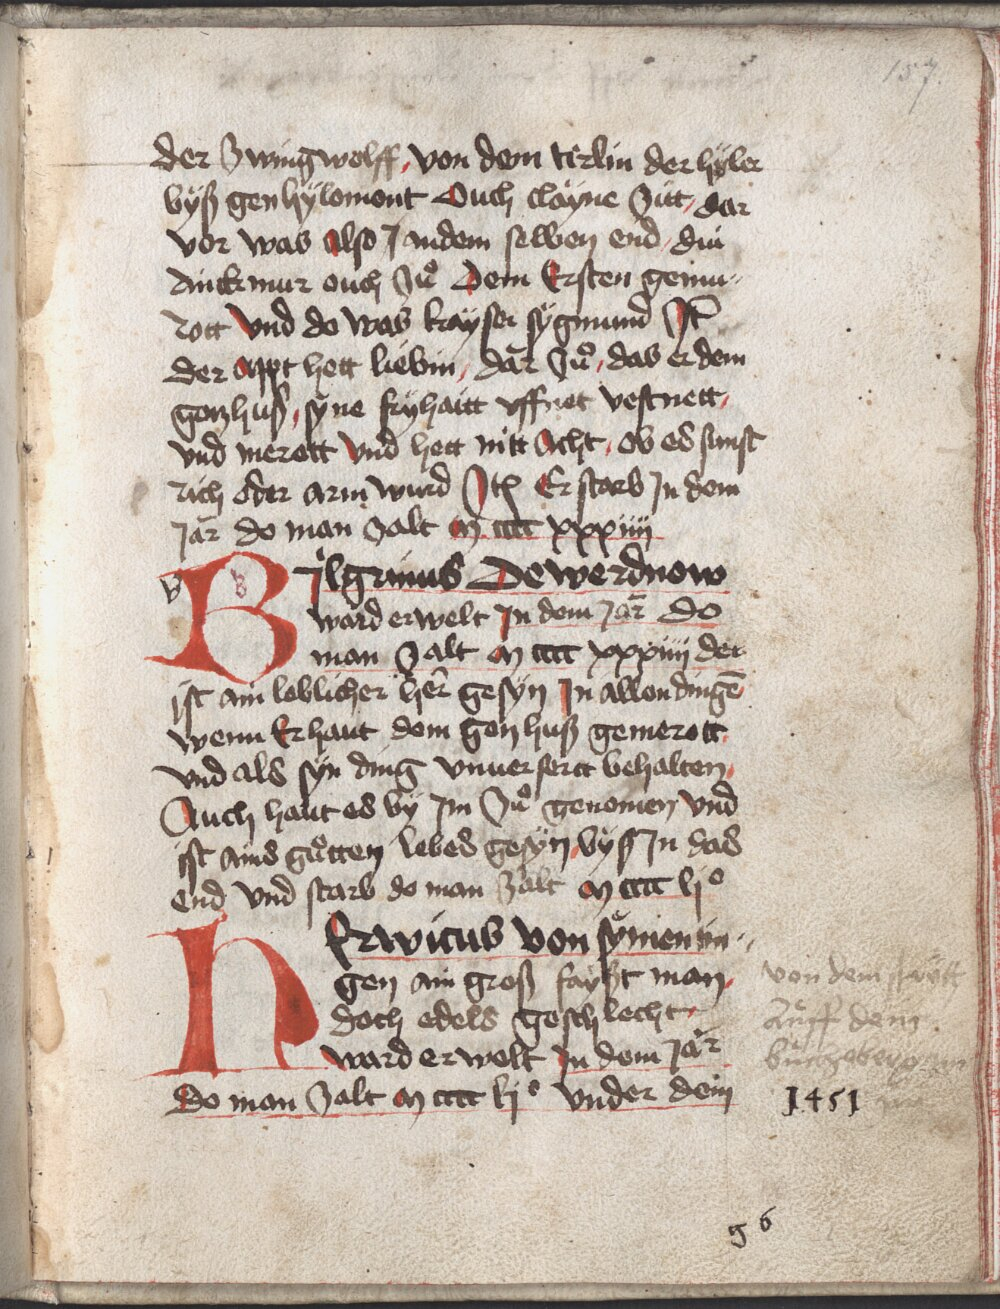 157.
der Zwingwolff, von dem türlin der hyler
byß gen hylomont Ouch clayne Zitt, dar
vor was also Jn dem selben end, die
dinckmur ouch Zů Dem Ersten gemu-
rott Vnd do was kayser sygmund Jtē
der appt hett liebin, dar Zů, das er dem
gotzhuß, syne fryhaitt vffnet vestnett,
vnd merott Vnd hett nitt Acht, ob es sunst
rich oder arm wurd Jtē Er starb Jn dem
Jār do man Zalt M cccc xxxiiii
BJlgrinus De werdnow
ward erwelt Jn dem Jār Do
man Zalt M cccc xxxiiii der
ist ain loblicher her gesyn Jn allen dingē
wenn Er haut dem Gotzhuß gemerott
vnd als syn ding vnuersertt behalten,
Auch haut es by Jm Zů genomen Vnd
ist ains gůtten lebes gesyn, byß Jn das
end Vnd starb do man Zalt M cccc lj°
hErwicus von symentin-
gen ain groß fayßt man,
doch edels geschlecht,
ward erwelt Jn dem Jār
Do man Zalt M cccc lj° Vnder dem
von dem
auff dem
1451
g 6